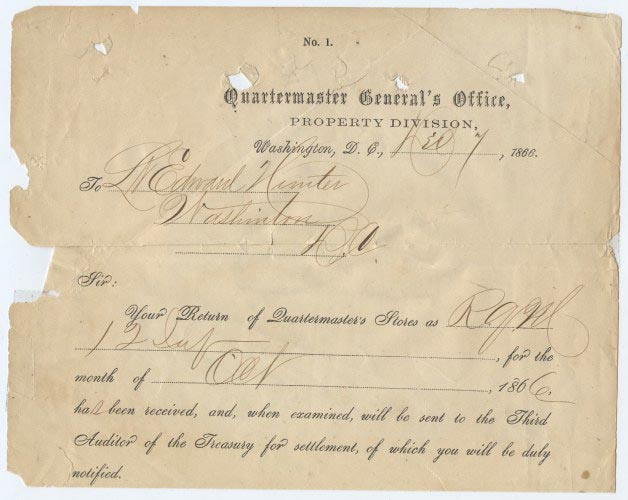 No. 1.
Quartermaster General's Office,
PROPERTY DIVISION,
Washington, D. C., Dec 7, 1866.
To Lt Edward Hunter
Washinton
D.C.
Sir:
Your Return of Quartermaster's Stores as R.Q.M.
12 Inf, for the
month of Oct, 1866,
has been received, and, when examined, will be sent to the Third
Auditor of the Treasury for settlement, of which you will be duly
notified.